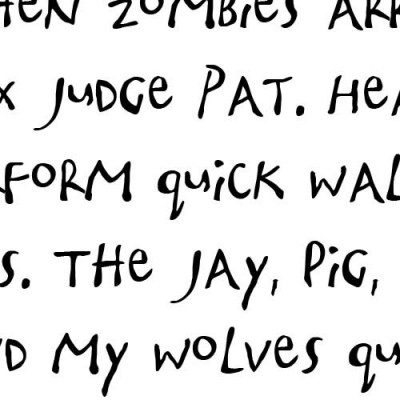 HEN ZOMBIES ARR
x JUDGE PAT. HEA
FORM quicK WAL
s. THE JAY, PiG,
D My WOLVES qu